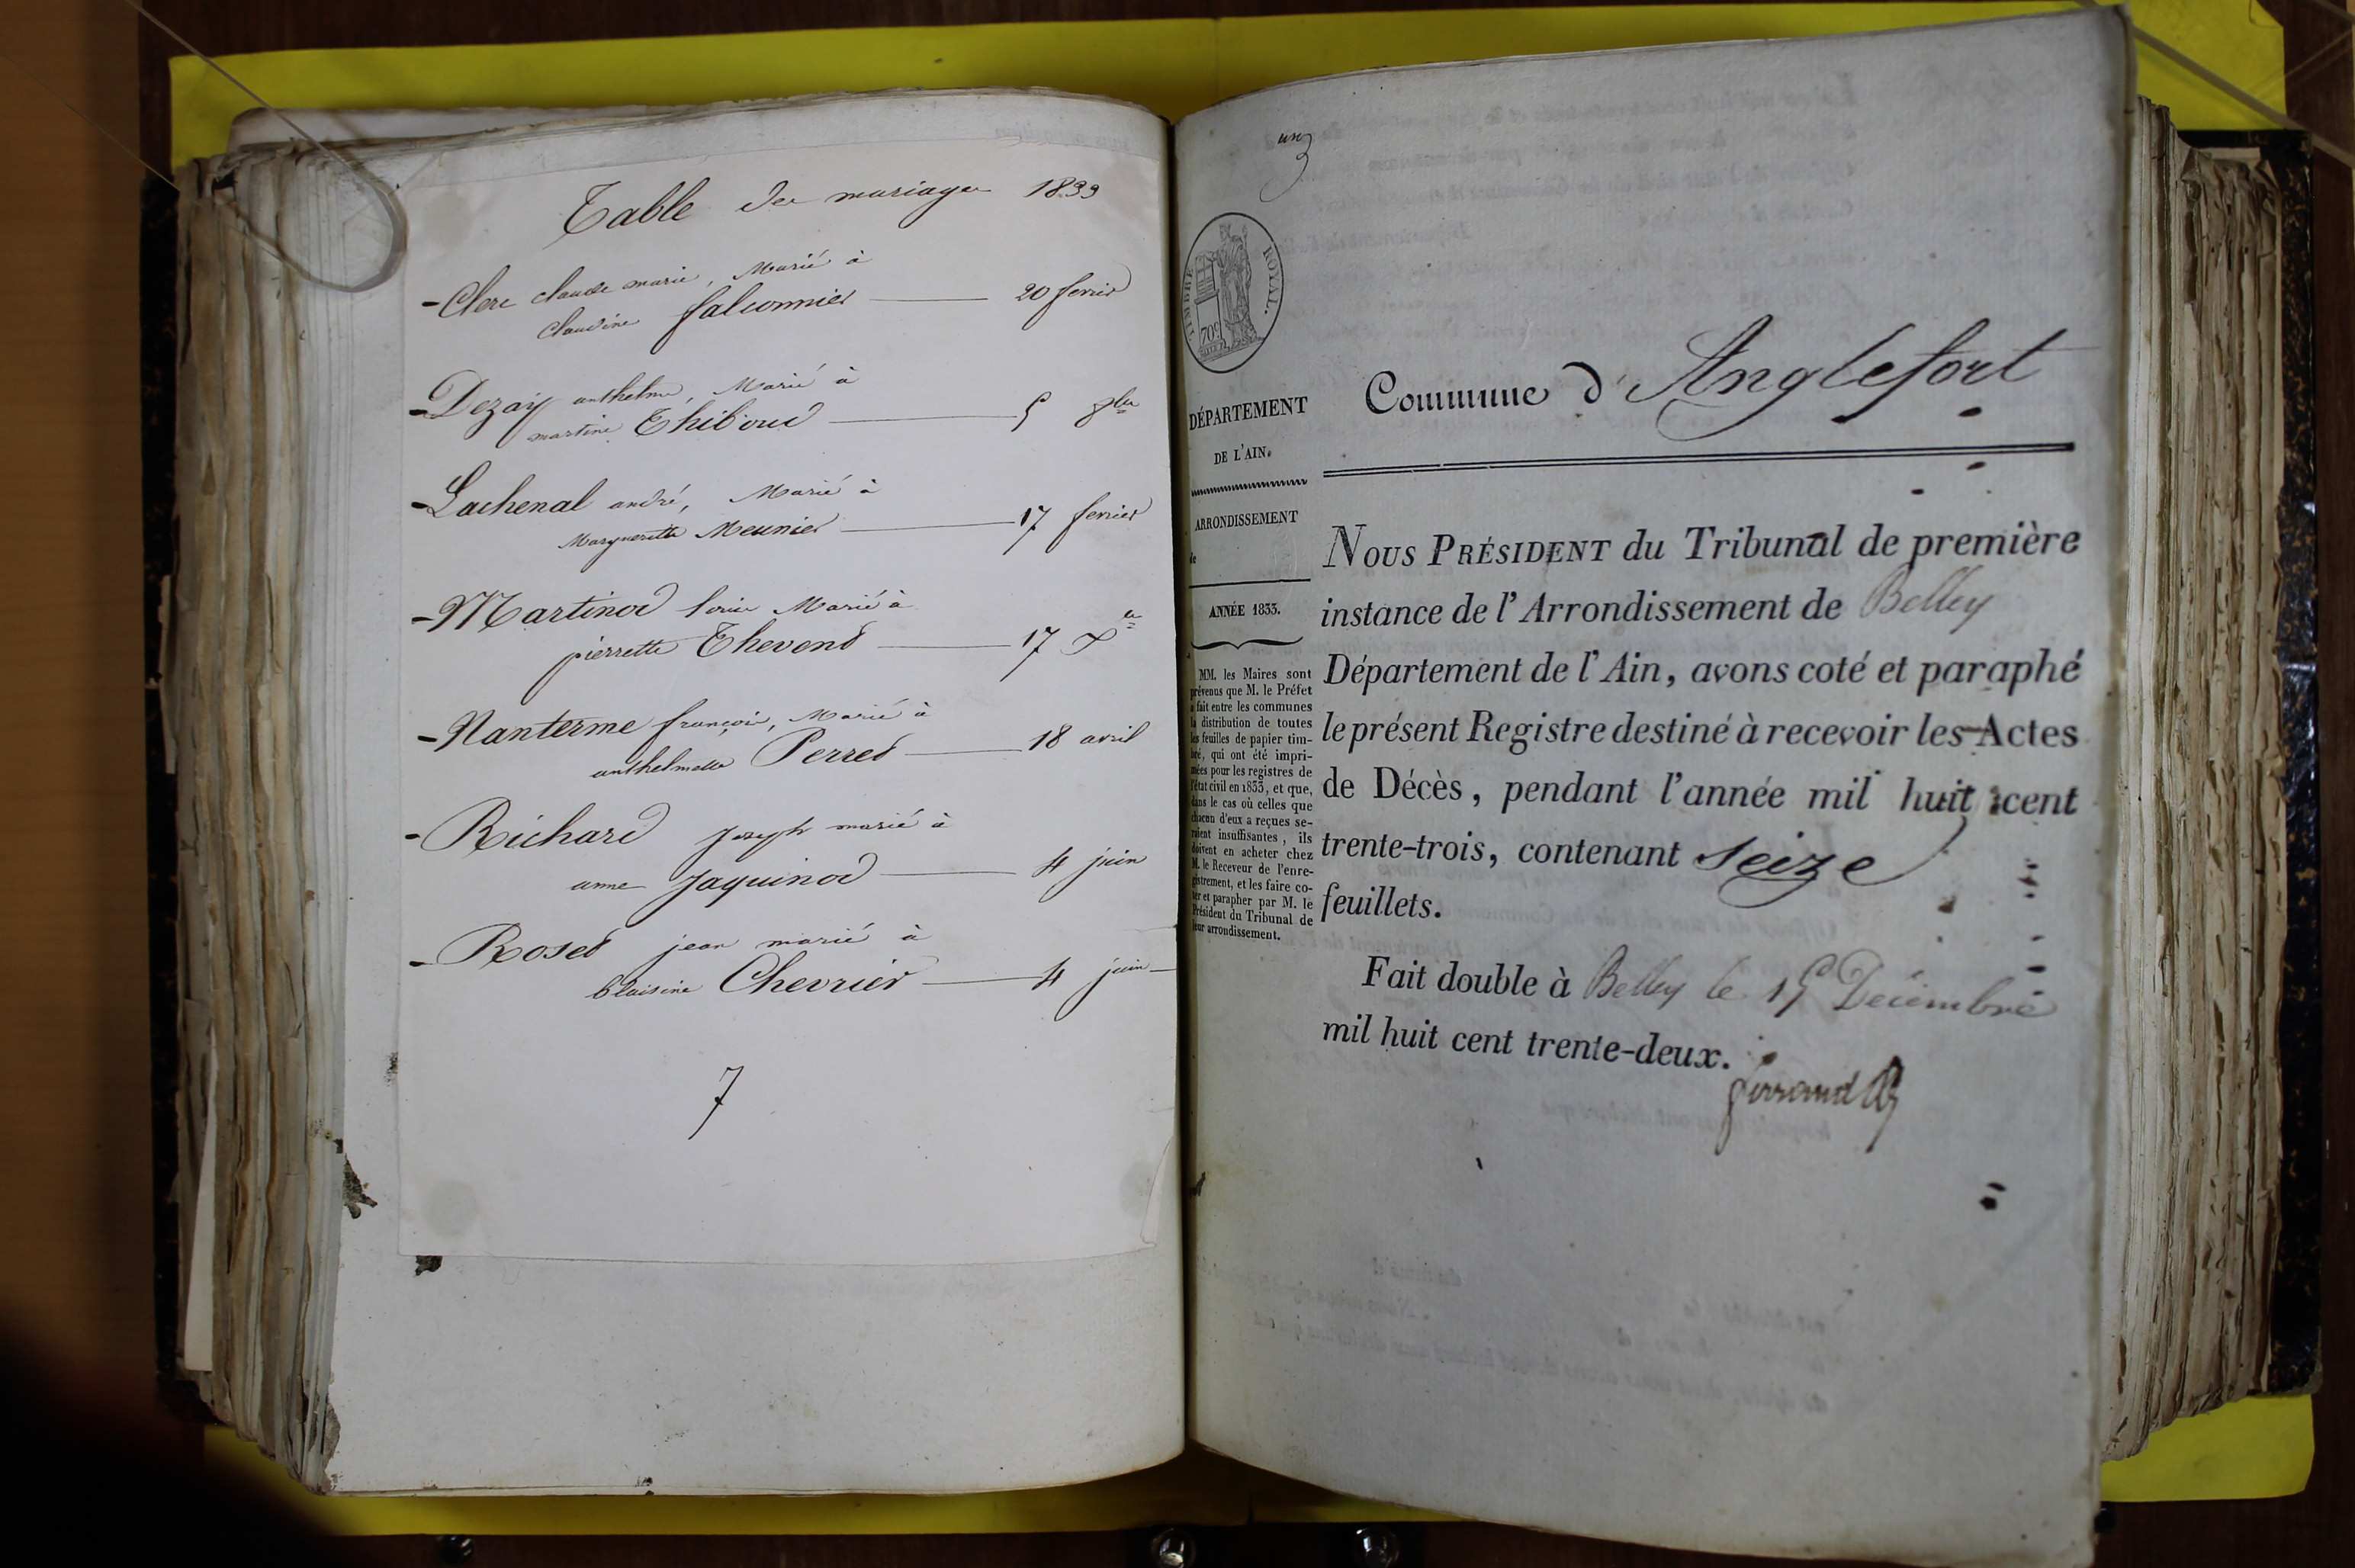 Table des mariages 1833
- Clerc claude marie, Marié à
claudine falconnier — 20 fevrier
- Dezay anthelme, Marié à
martine Thiboud — 5 8bre
- Lachenal andré, Marié à
Marguerette Meunier — 17 fevrier
- Martinod louis Marié à
pierrette Thevend — 17 Xre
- Nanterme françois, Marié à
anthelmette Perred — 18 avril
- Richard Joseph marié à
anne Jaquinod — 4 juin
- Rosed jean marié à
blaisine Chevrier — 4 juin
7
un
TIMBRE ROYAL.
70c
DÉPARTEMENT
DE L'AIN.
ARRONDISSEMENT
de
ANNÉE 1833.
MM. les Maires sont
prévenus que M. le Préfet
a fait entre les communes
la distribution de toutes
les feuilles de papier tim-
bré, qui ont été impri-
mées pour les registres de
l'état civil en 1833, et que,
dans le cas où celles que
chacun d'eux a reçues se-
raient insuffisantes, ils
doivent en acheter chez
M. le Receveur de l'enre-
gistrement, et les faire co-
ter et parapher par M. le
Président du Tribunal de
leur arrondissement.
Commune d'Anglefort
NOUS PRÉSIDENT du Tribunal de première
instance de l'Arrondissement de Belley
Département de l'Ain, avons coté et paraphé
le présent Registre destiné à recevoir les Actes
de Décès, pendant l'année mil huit cent
trente-trois, contenant seize
feuillets.
Fait double à Belley le 15 Décembre
mil huit cent trente-deux.